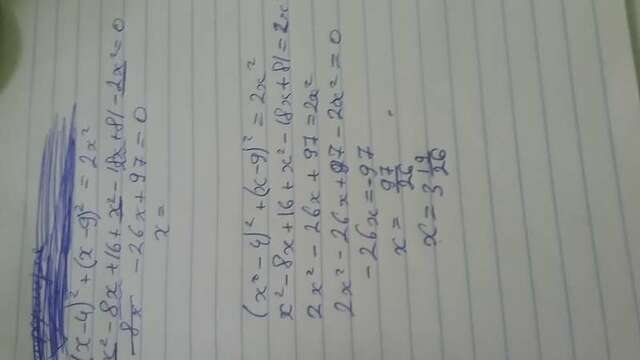 (x-4)² + (x-9)² = 2x²
x² - 8x + 16 + x² - 18x + 81 - 2x² = 0
- 26x + 97 = 0
x =
(x² - 4)² + (x-9)² = 2x²
x² - 8x + 16 + x² - 18x + 81 = 2x
2x² - 26x + 97 = 2x²
2x² - 26x + 97 - 2x² = 0
- 26x = -97
x = 97/26
x = 3 19/26